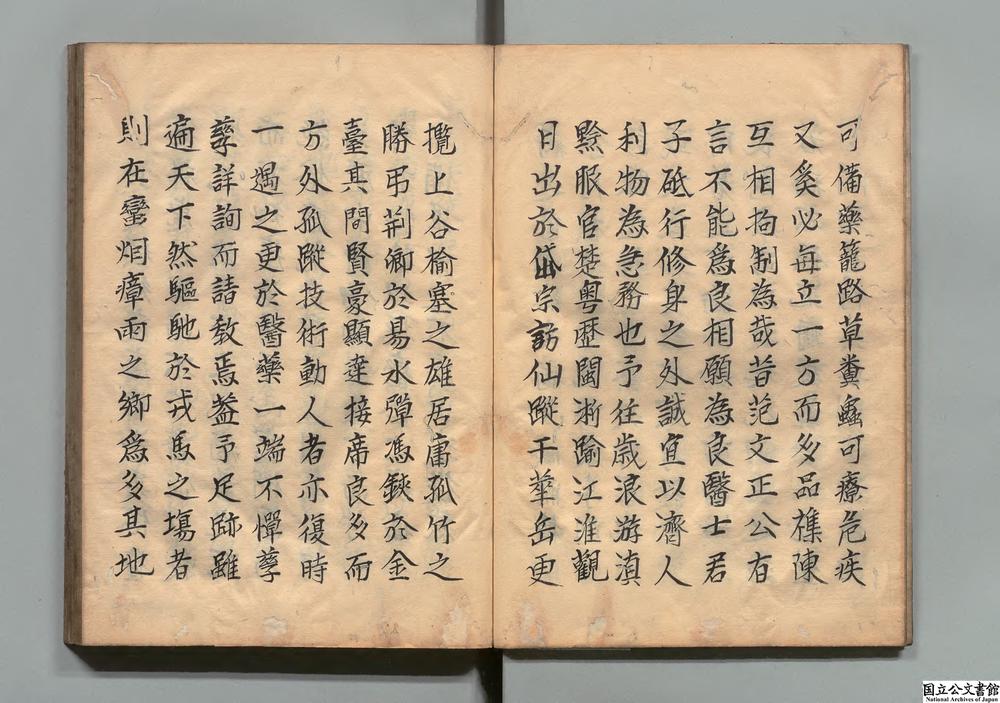 可備藥籠路草糞蟲可療危疾
又奚必每立一方而多品襍陳
互相拘制為哉昔范文正公有
言不能為良相願為良醫士君
子砥行修身之外誠宜以濟人
利物為急務也予往歲浪游滇
黔服官楚粵歷閩浙踰江淮觀
日出於岱宗訪仙蹤于華岳更
攬上谷榆塞之雄居庸孤竹之
勝弔荆卿於易水彈馮鋏於金
臺其間賢豪顯達接席良多而
方外孤蹤技術動人者亦復時
一遇之更於醫藥一端不憚孳
孳詳詢而請教焉葢予足跡雖
遍天下然驅馳於戎馬之塲者
則在蠻烟瘴雨之鄉為多其地
国立公文書館
National Archives of Japan